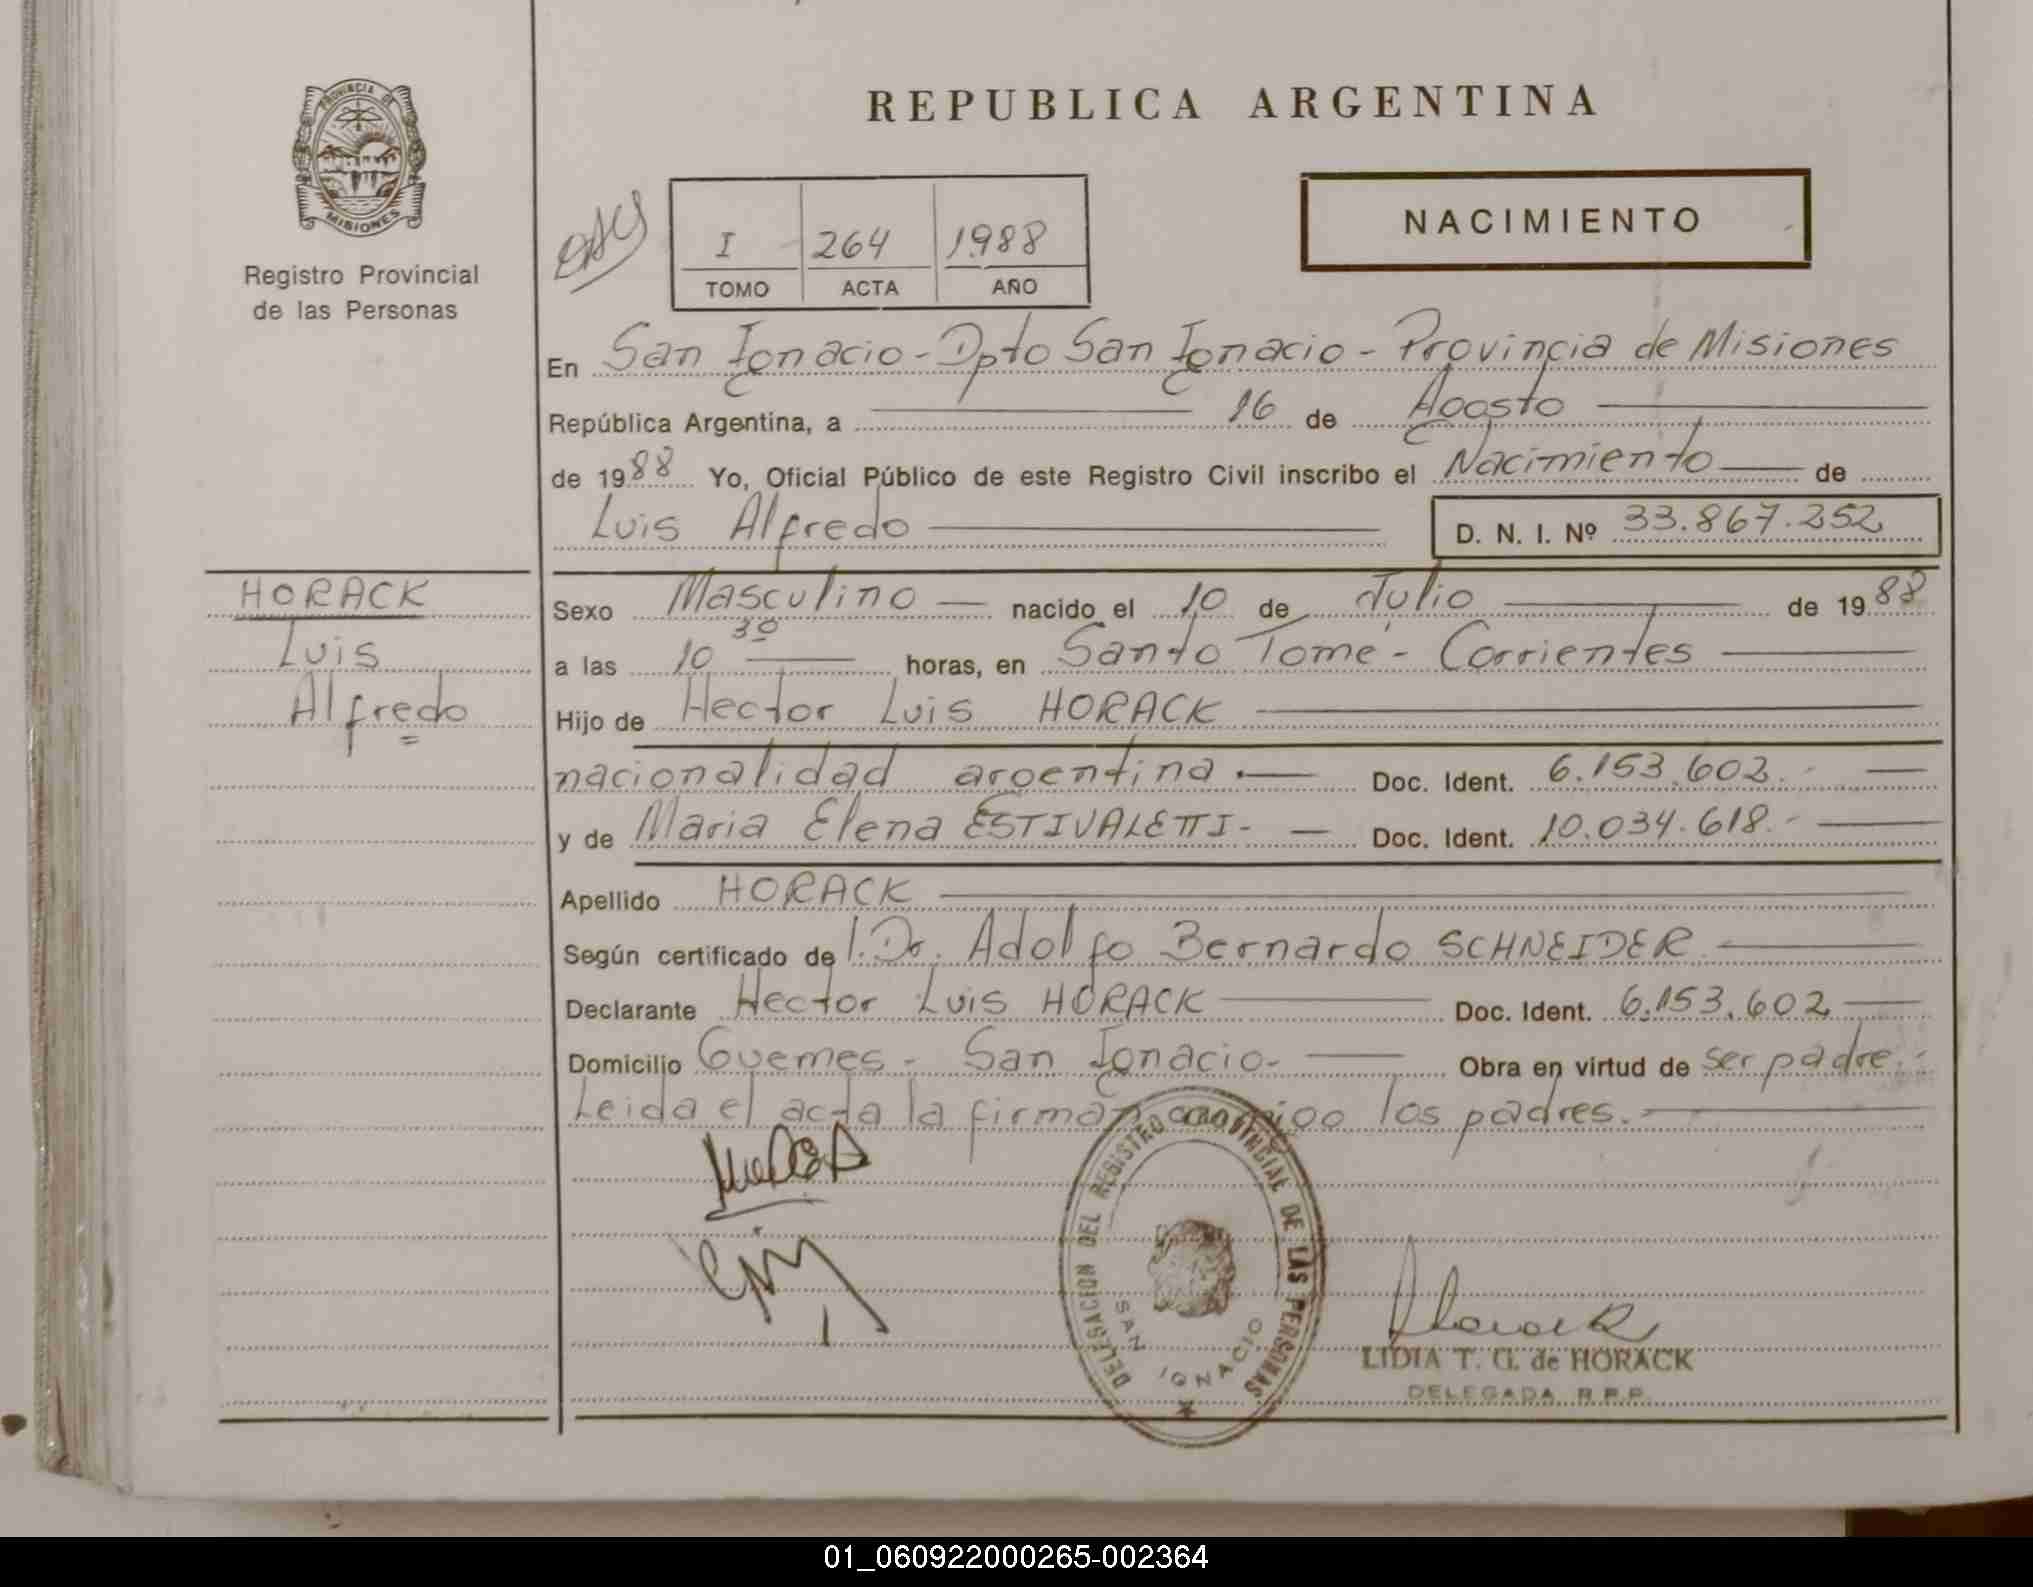 PROVINCIA DE
MISIONES
Registro Provincial
de las Personas
REPUBLICA ARGENTINA
NACIMIENTO
I 264 1988
TOMO ACTA AÑO
En San Ignacio - Dpto San Ignacio - Provincia de Misiones
República Argentina, a 16 de Agosto
de 1988 Yo, Oficial Público de este Registro Civil inscribo el Nacimiento de
Luis Alfredo D. N. I. Nº 33.867.252
HORACK
Luis
Alfredo
Sexo Masculino nacido el 10 de Julio de 1988
a las 10 30 horas, en Santo Tomé - Corrientes
Hijo de Hector Luis HORACK
nacionalidad argentina.- Doc. Ident. 6.153.602.-
y de Maria Elena ESTIVALETTI.- Doc. Ident. 10.034.618.-
Apellido HORACK
Según certificado de l.Dr. Adolfo Bernardo SCHNEIDER
Declarante Hector Luis HORACK Doc. Ident. 6.153.602
Domicilio Guemes - San Ignacio.- Obra en virtud de ser padre.-
Leida el acta la firman conmigo los padres.-
DELEGACION DEL REGISTRO PROVINCIAL DE LAS PERSONAS
SAN IGNACIO
LIDIA T. G. de HORACK
DELEGADA R.P.P.
01_060922000265-002364